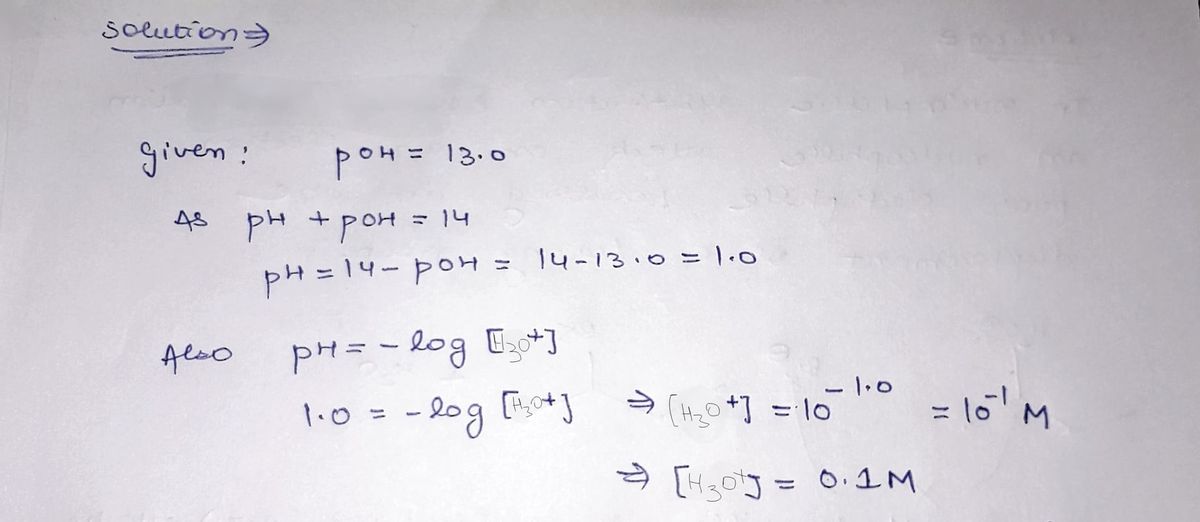 Solution ⇒
given : pOH = 13.0
As pH + pOH = 14
pH = 14 - pOH = 14-13.0 = 1.0
Also pH = - log [H3O+]
1.0 = - log [H3O+] ⇒ [H3O+] = 10^-1.0 = 10^-1 M
⇒ [H3O+] = 0.1M